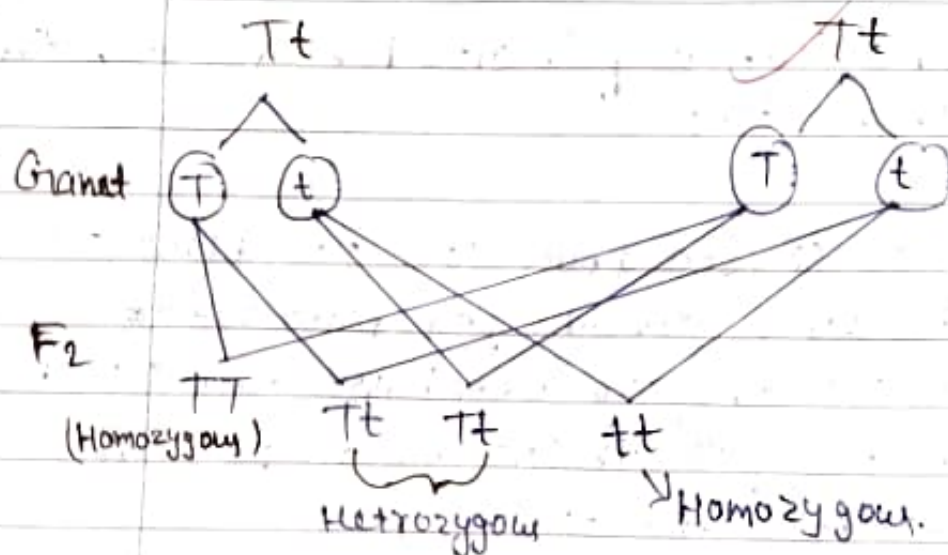 Tt Tt
Gamet T t T t
F2
TT Tt Tt tt
(Homozygous)
Hetrozygous Homozygous.